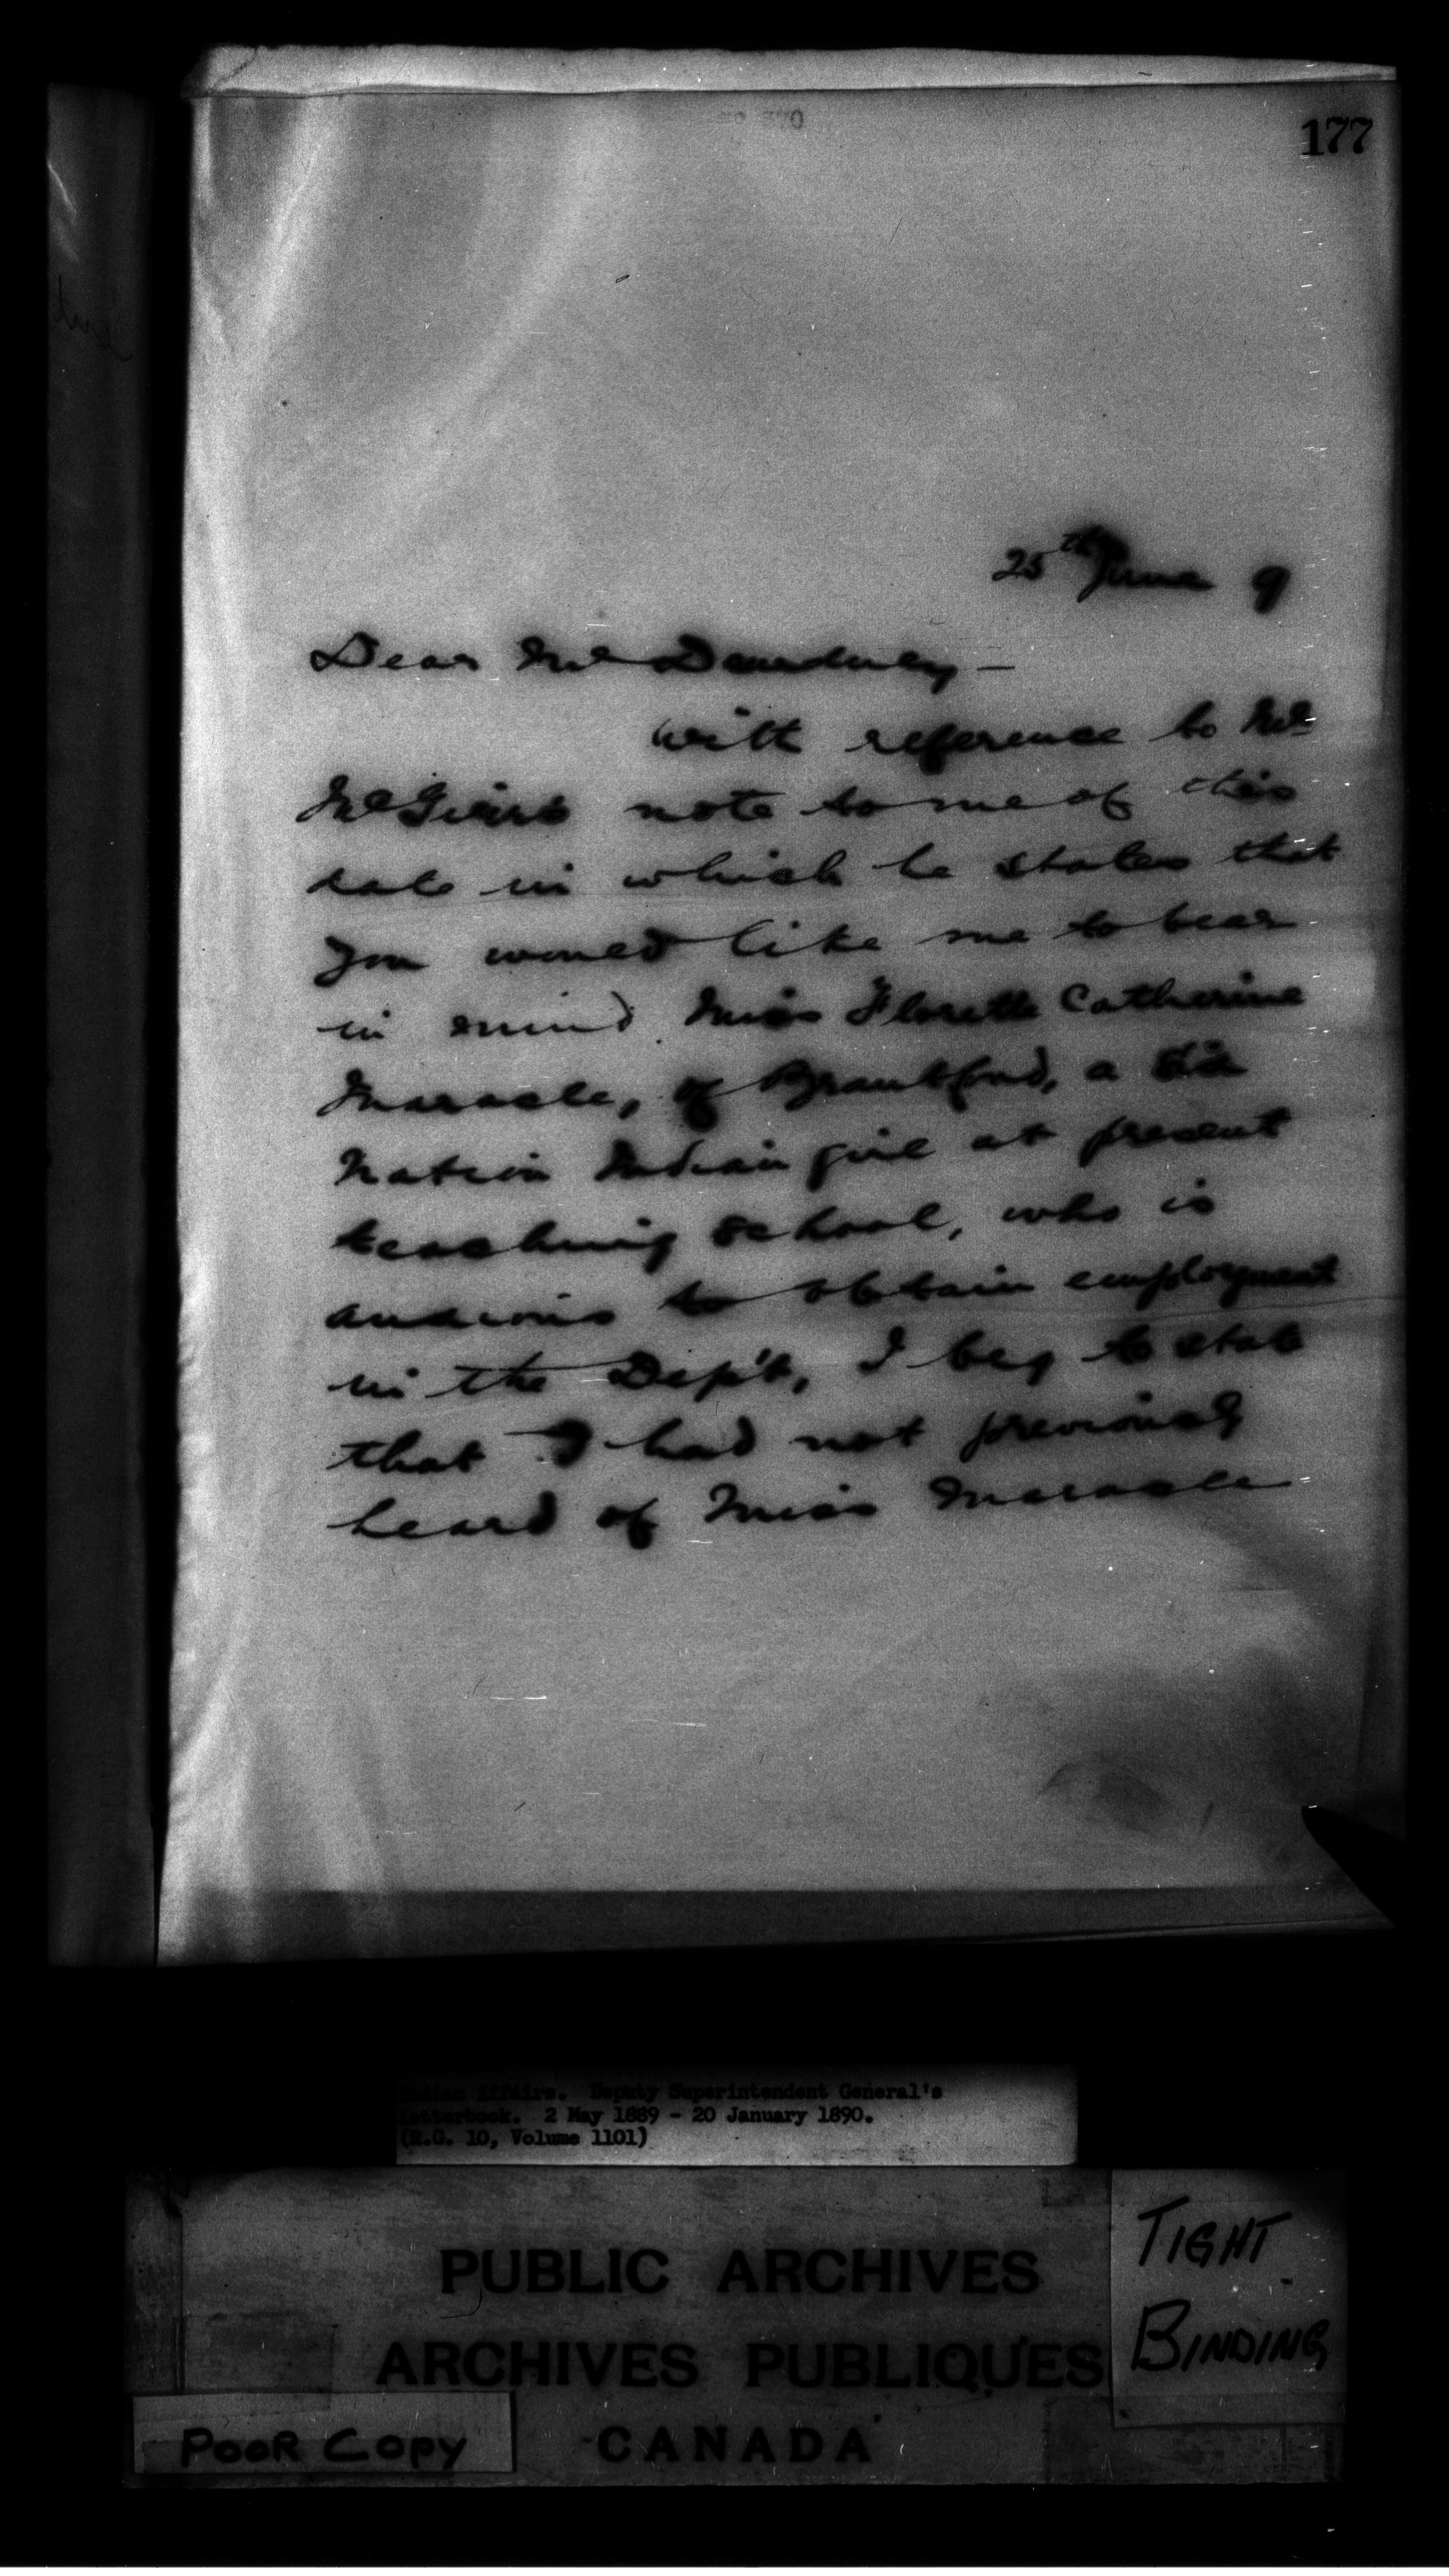 177
25th June 9
Dear Mr Dewdney –
With reference to Mr
McGirrs note to me of this
date in which he states that
you would like me to bear
in mind Miss Floretta Catherine
Maracle, of Brantford, a Six
Nation Indian girl at present
teaching school, who is
anxious to obtain employment
in the Dep't, I beg to state
that I had not previously
heard of Miss Maracle
Indian Affairs. Deputy Superintendent General's
Letterbook. 2 May 1889 - 20 January 1890.
(R.G. 10, Volume 1101)
PUBLIC ARCHIVES
ARCHIVES PUBLIQUES
CANADA
TIGHT
BINDING
POOR COPY